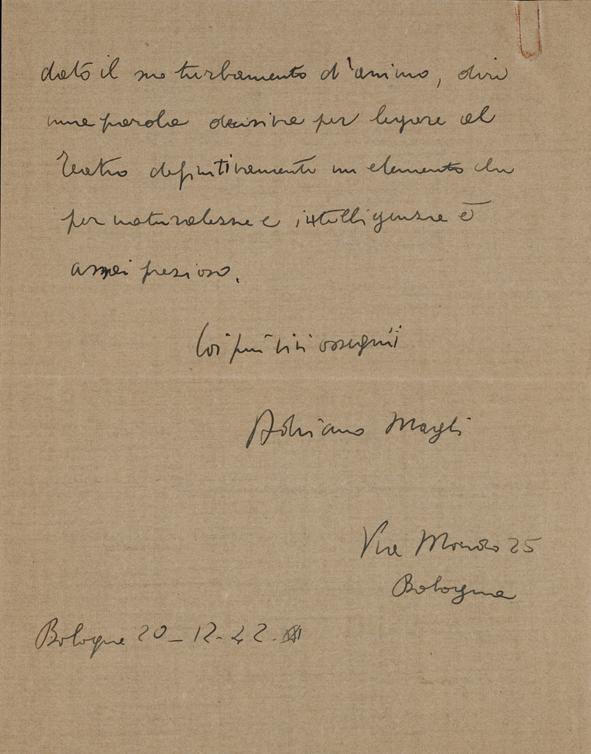 dato il suo turbamento d'animo, dire
una parola decisiva per legare al
Teatro definitivamente un elemento che
per naturalezza e intelligenza è
assai prezioso.
Coi più vivi ossequii
Adriano Magli
Via Mondo 25
Bologna
Bologna 20-12-42